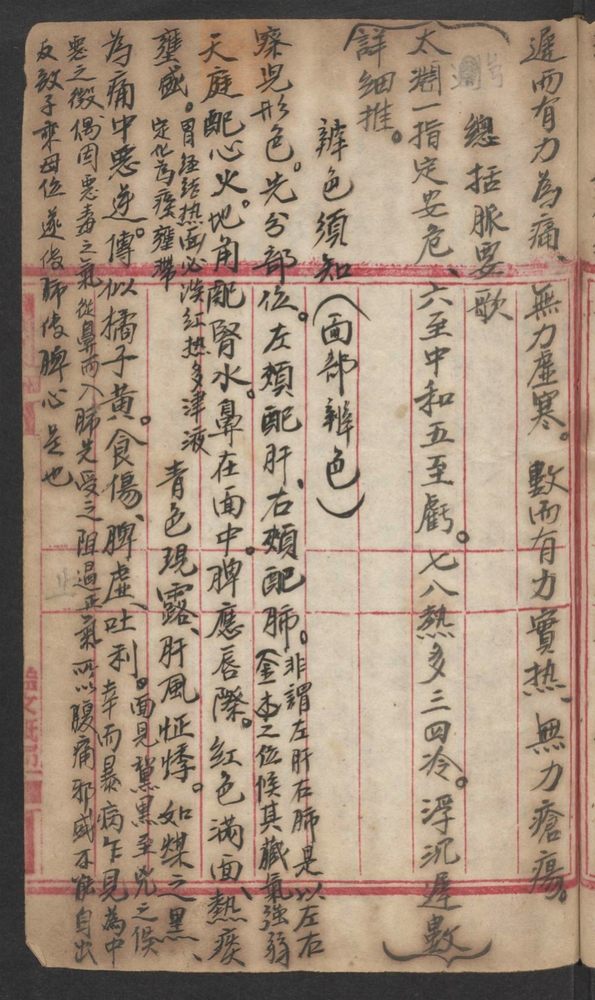 遲而有力為痛、無力虛寒。數而有力實热、無力瘡瘍。
總括脈要歌
太淵一指定安危、六至中和五至虧。七八熱多三四冷。浮沉遲數
詳細推。
辨色須知（面部辨色）
察兒形色。先分部位。左頰配肝、右頰配肺。非謂左肝右肺是以左右
金木之位候其臟氣強弱
天庭配心火。地角配腎水。鼻在面中。脾應唇際。紅色滿面、熱痰
壅盛。胃經結热面必淡紅热多津液
定化為痰壅滯
青色現露、肝風怔悸。如煤之黑、
為痛中惡逆。傳似橘子黃。食傷、脾虛、吐利。面見黧黑至兇之候
幸而暴病乍見為中
惡之徵偶因惡毒之氣從鼻而入肺先受之阻過正氣所以腹痛邪盛不能自出
反救子乘母位遂傳肺傳脾心是也